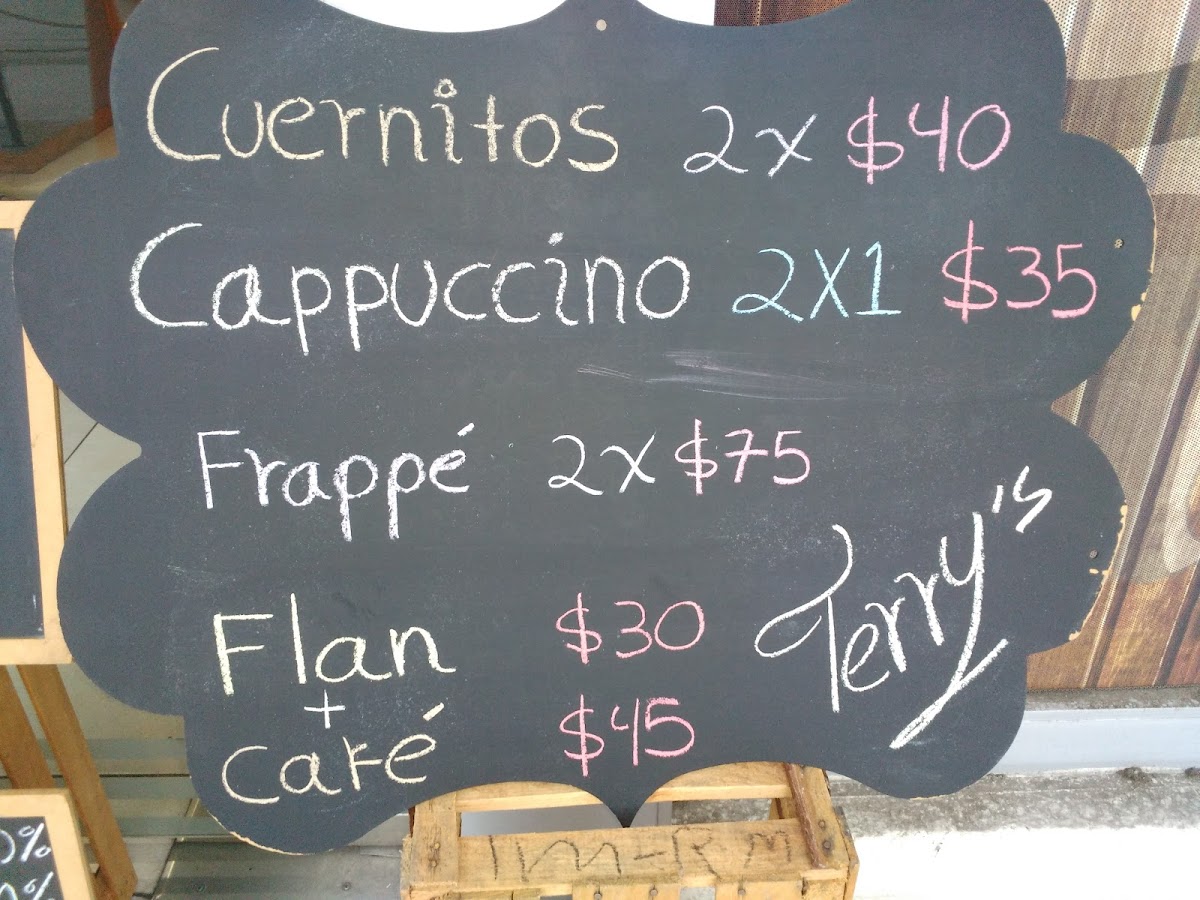 Cuernitos 2x $40
Cappuccino 2X1 $35
Frappé 2x $75
Flan $30
+
café $45
Terry's
1M-RM
0%